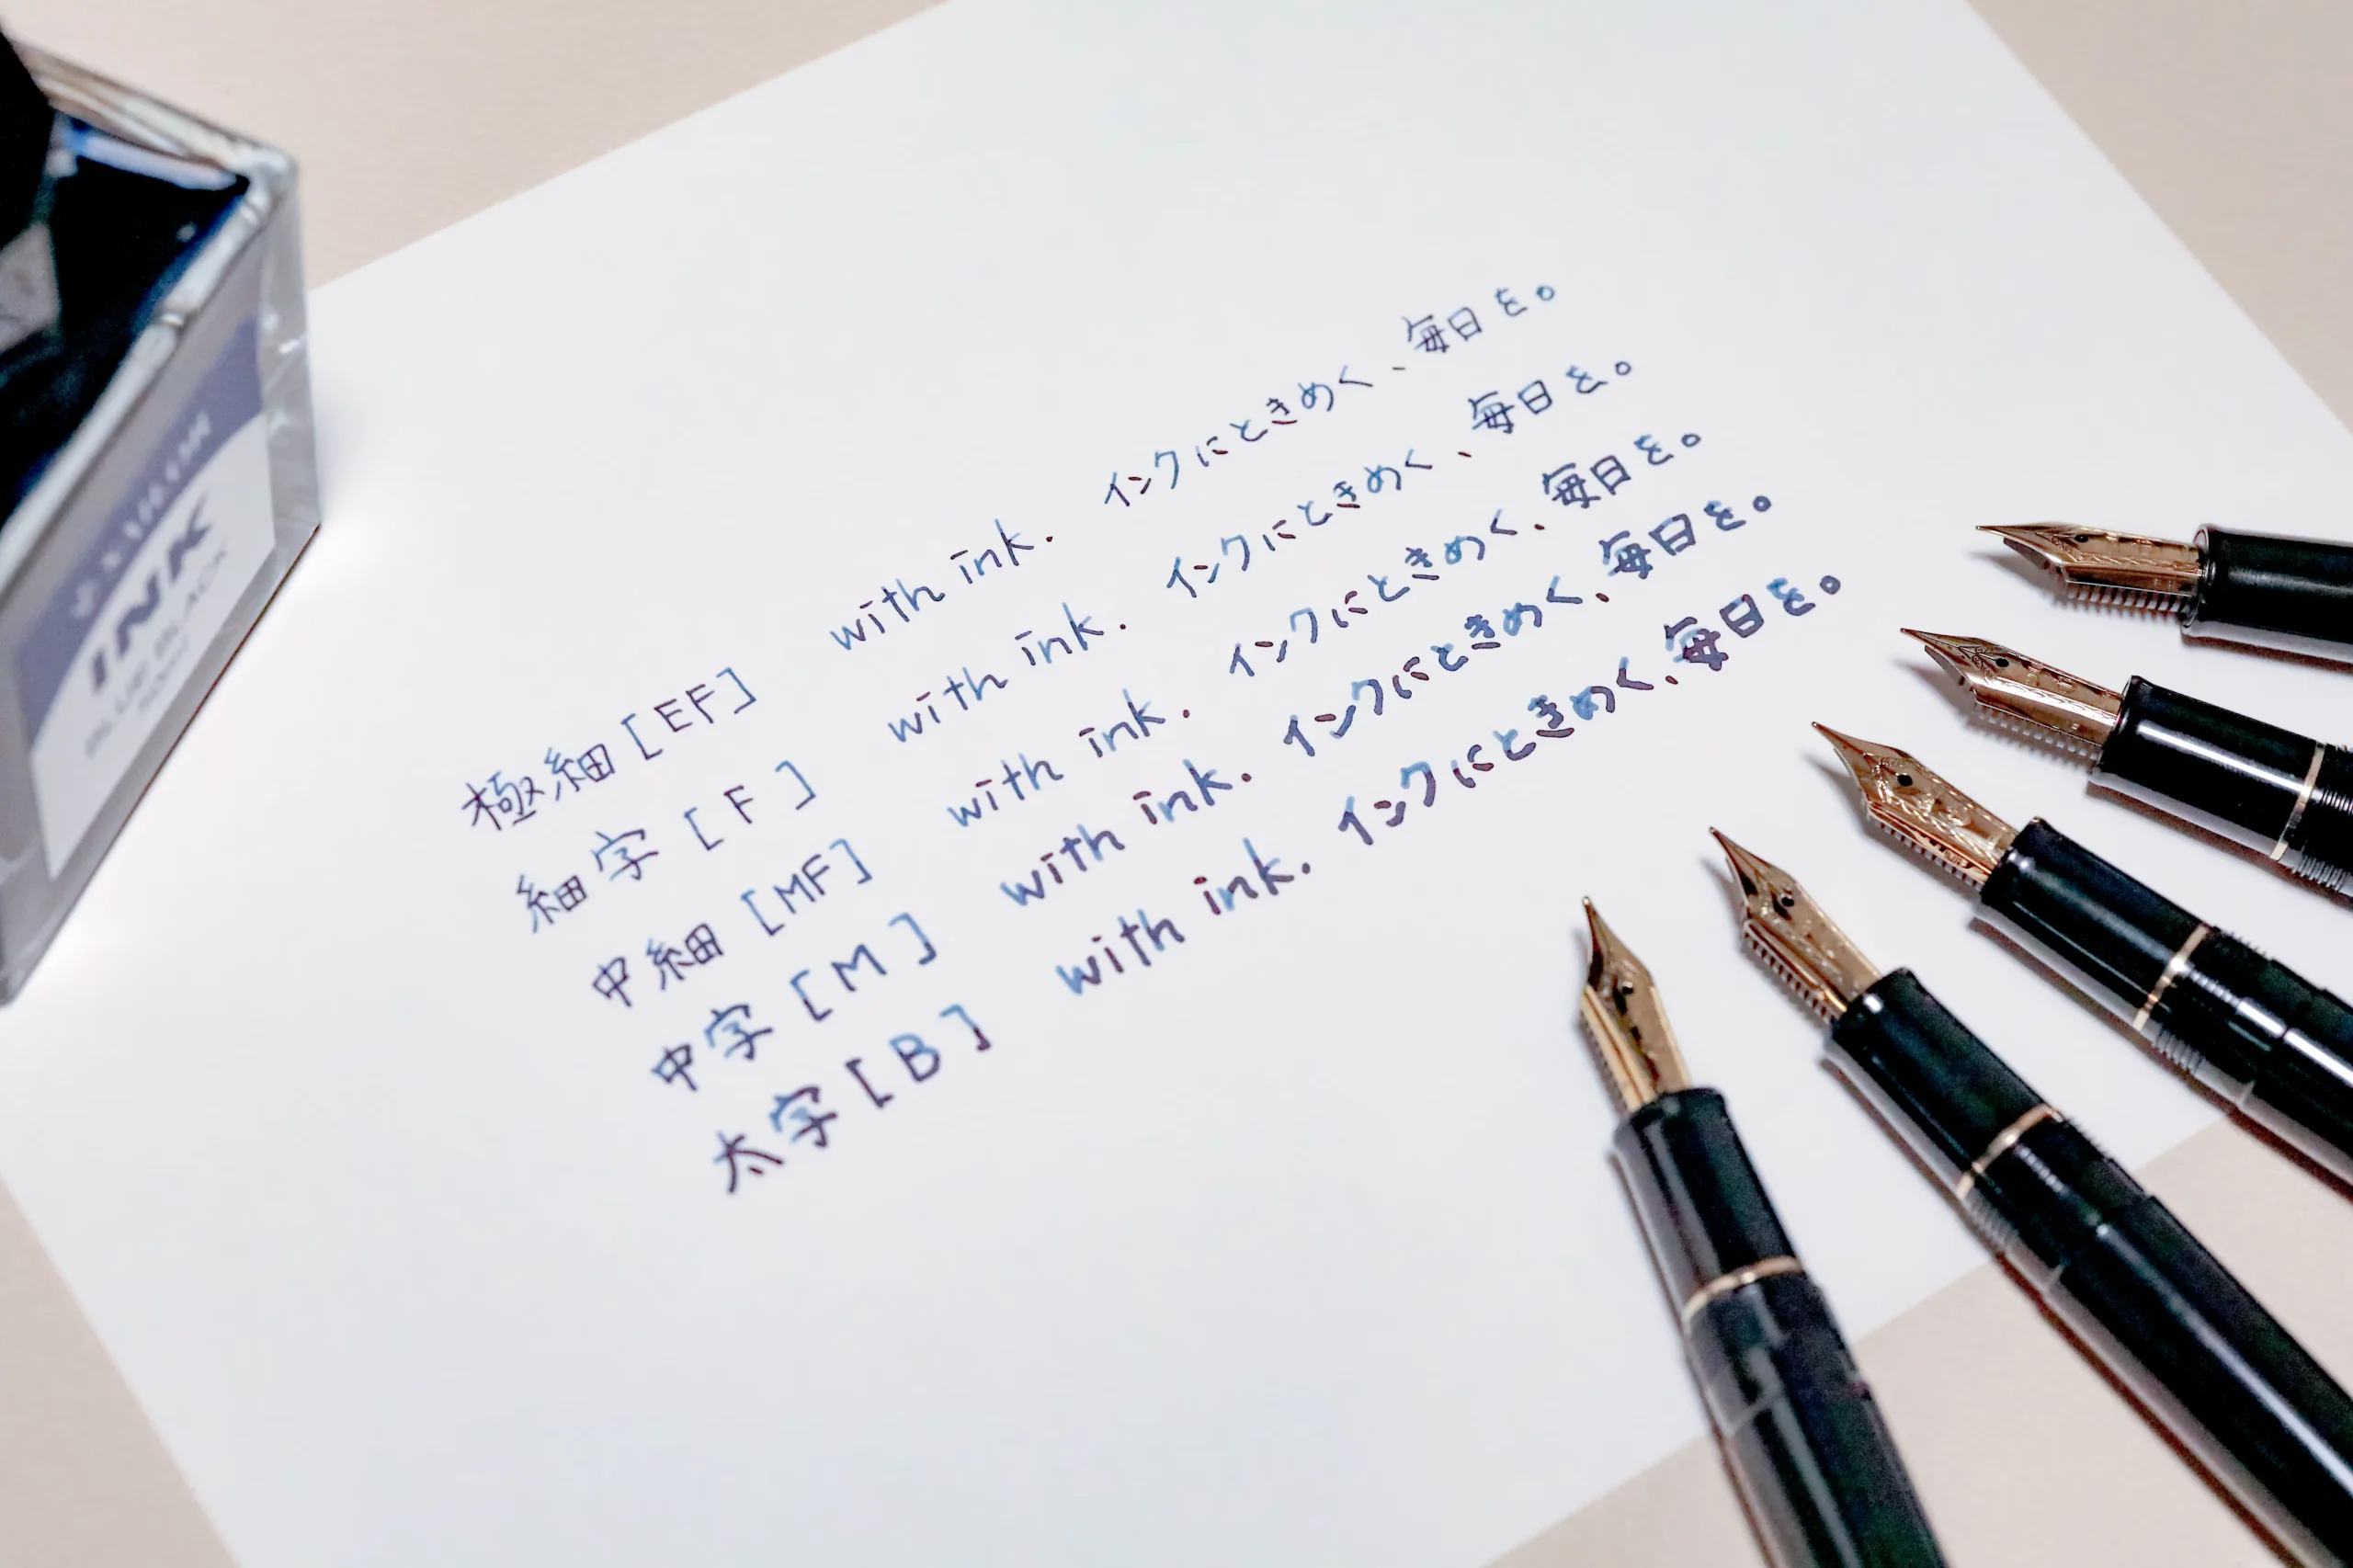 極細[EF] with ink. インクにときめく、毎日を。
細字[F] with ink. インクにときめく、毎日を。
中細[MF] with ink. インクにときめく、毎日を。
中字[M] with ink. インクにときめく、毎日を。
太字[B] with ink. インクにときめく、毎日を。
INK
BLUE BLACK